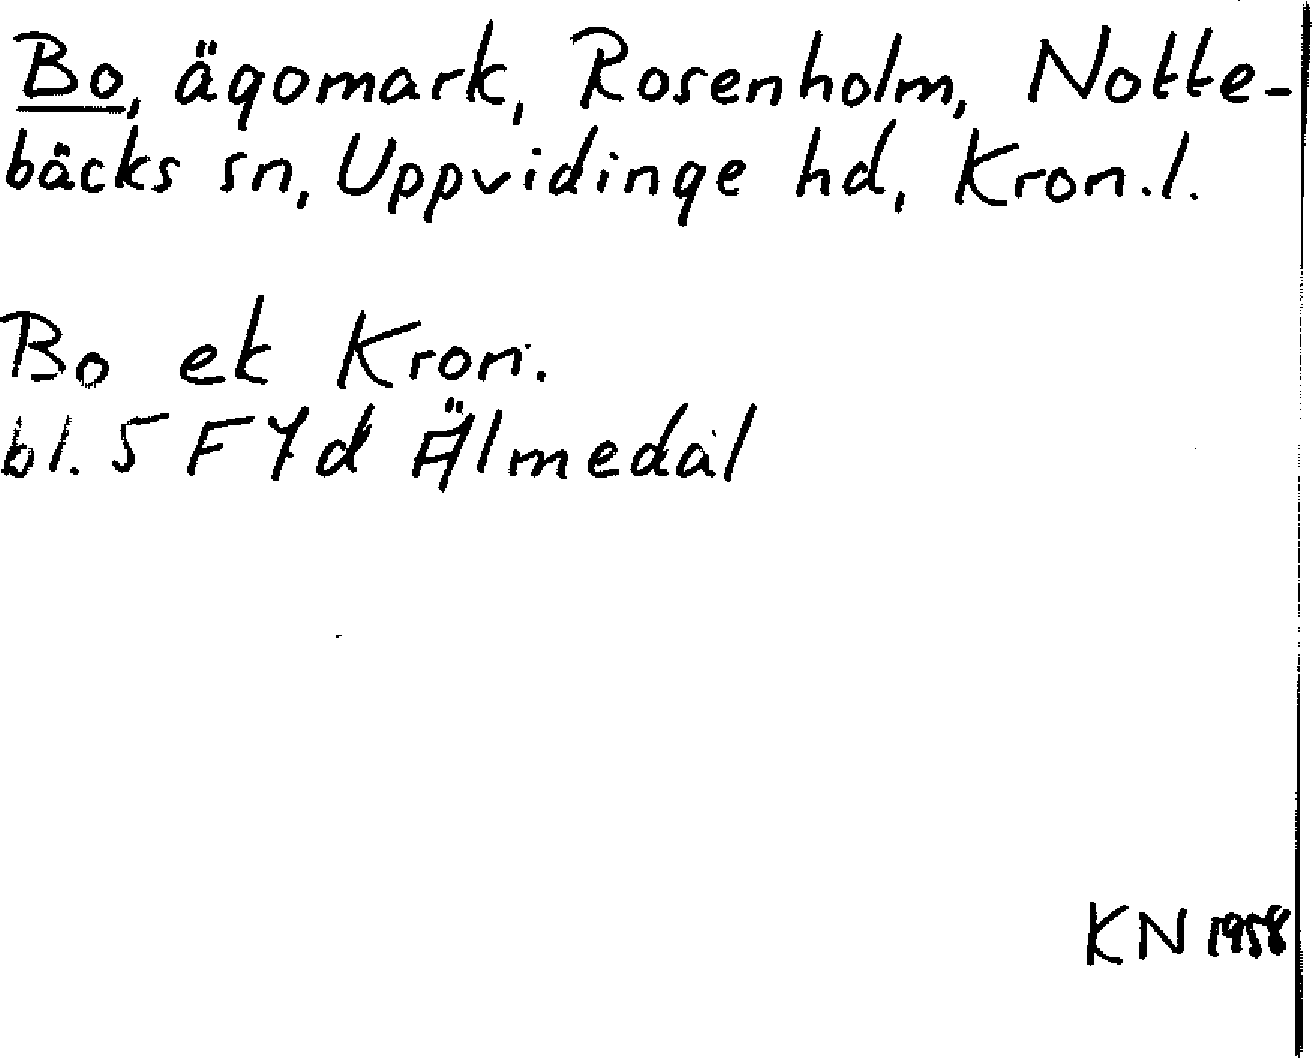 Bo, ägomark, Rosenholm, Notte-
bäcks sn, Uppvidinge hd, Kron.l.
Bo ek Kron.
bl. 5 F 7d Älmedal
KN 1958